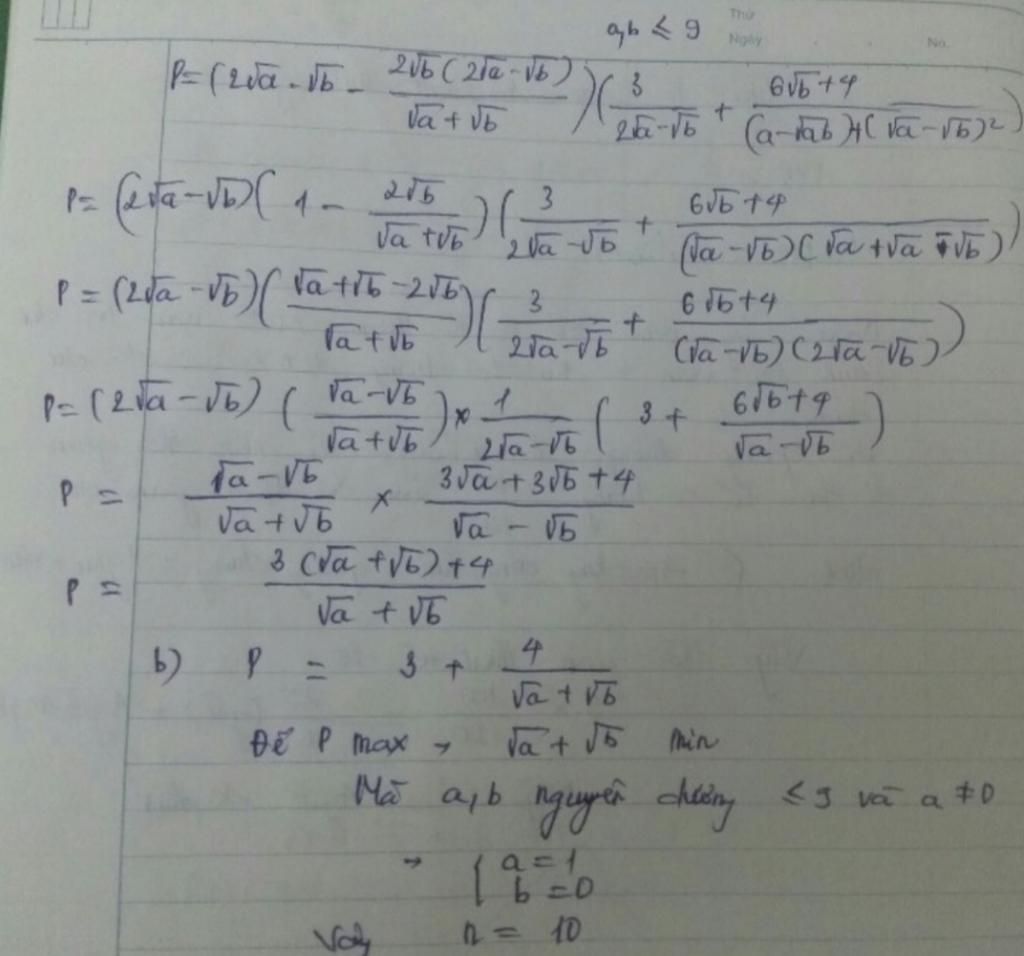 Thứ
a,b ≤ 9
Ngày No.
P= (2√a - √b - (2√b(2√a-√b))/(√a+√b))(3/(2√a-√b) + (6√b+4)/((a-√ab)+(√a-√b)²))
P= (2√a-√b)(1 - 2√b/(√a+√b))(3/(2√a-√b) + (6√b+4)/((√a-√b)(√a+√a-√b)))
P = (2√a-√b)((√a+√b-2√b)/(√a+√b))(3/(2√a-√b) + (6√b+4)/((√a-√b)(2√a-√b)))
P= (2√a-√b)((√a-√b)/(√a+√b))×1/(2√a-√b)(3+(6√b+4)/(√a-√b))
P = (√a-√b)/(√a+√b) × (3√a+3√b+4)/(√a-√b)
P = (3(√a+√b)+4)/(√a+√b)
b) P = 3 + 4/(√a+√b)
Để P max → √a+√b min
Mà a,b nguyên dương ≤ 9 và a ≠ 0
→ { a = 1
b = 0
Vậy n = 10